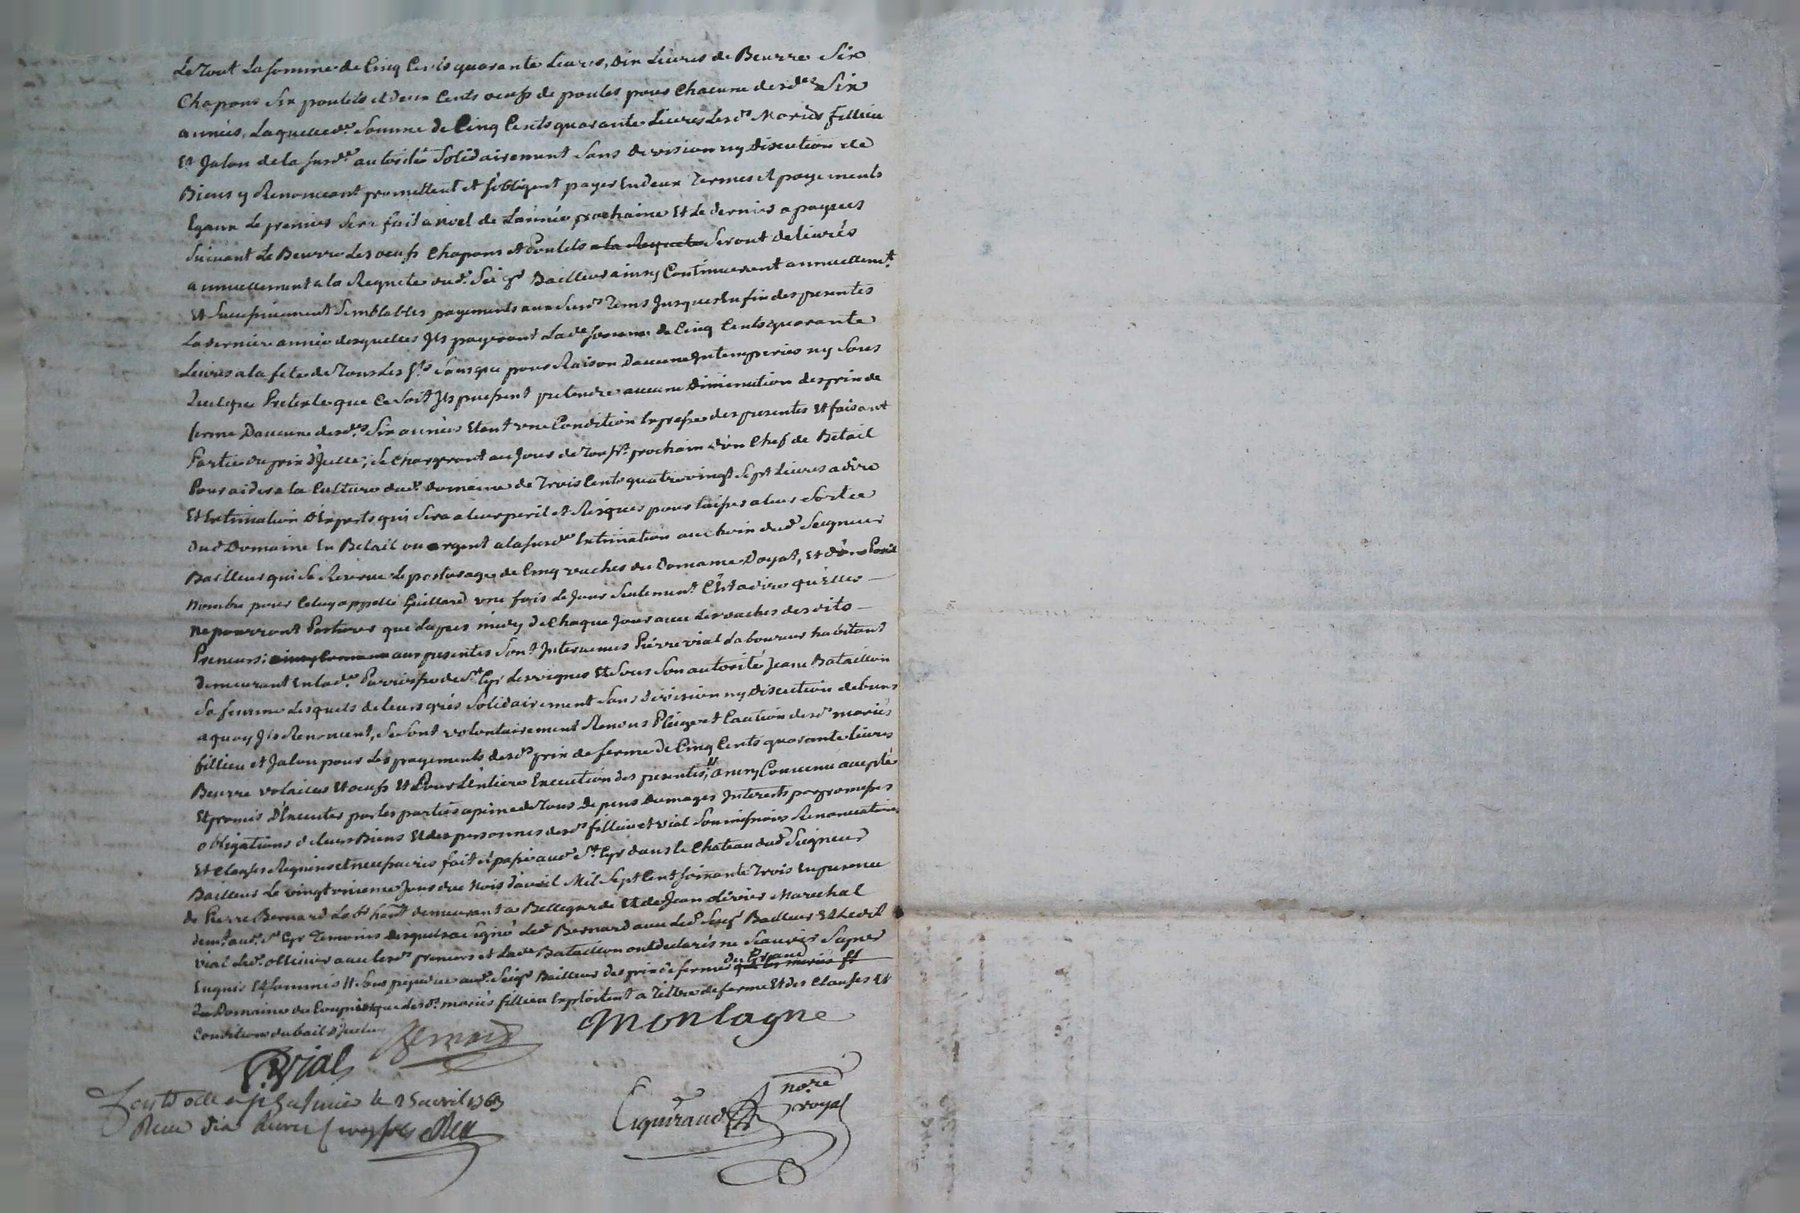 Le Tout La somme de Cinq Cents quarante Livres, dix Livres de Beurre Six
Chapons six poulets et deux Cents oeufs de poules pour Chacune desd. Six
années, Laquelle de. Somme de Cinq Cents quarante Livres Lesd. Mariés fillieu
Et Jalon de la susd. autorité Solidairement Sans Division ny Discution de
Biens y Renonceant promettent et s'obligent payer En deux Termes et payements
Egaux Le premier Sera fait a noel de L'année prochaine Et Le dernier a paques
Suivant Le Beurre Les oeufs Chapons et Poulets Seront delivrés
annuellement a la Requete dud. Seigr. Bailleur ainsy Continueront annuellemt.
Et Successivement Semblables payements aux Susd. Tems Jusques En fin des presentes
La derniere année desquelles Ils payeront Lade. somme de Cinq Cents quarante
Livres a la fete de Tous Les Sts. Sans que pour Raison D'aucune Intemperies ny Sous
Quelque Pretexte que Ce Soit Ils puissent pretendre aucune Diminution des prix de
ferme D'aucune desd. Six années Etant une Condition Expresse des presentes Et faisant
Partie du prix d'Icelle; Se Chargeront au Jour de Toussts. prochain d'un Chef de Betail
Pour aider a la Culture dud. Domaine de Trois Cents quatrevingt Sept Livres a dire
Et Estimation d'Experts qui Sera a leur peril et Risques pour laisser a leur Sortie
Dud Domaine En Betail ou argent a la susde. Estimation au choix dud. Seigneur
Bailleur qui Se Reserve Le pasturage de Cinq vaches du Domaine Doyat, Et d'un Pareil
Nombre pour Celuy appellé Guillard une fois le Jour Seulement C'est a dire qu'Elles
ne pourront Pasturer que d'apres midy de Chaque Jour avec Les vaches desdits
Preneurs; aux presentes Sont Intervenus Pierre vial Laboureur habitant
Demeurant En lade. Parroisse de St. Cyr Les vignes Et Sous Son autorité Jeane Bataillon
Sa femme Lesquels de leurs grés Solidairement Sans division ny discution de biens
a quoy Ils Renoncent, Se Sont volontairement Renous Pleiges et Caution desd. mariés
fillieu et Jalon pour Les payements desd. prix de ferme de Cinq Cents quarante livres
Beurre volailles Et oeufs Et Pour L'entiere Execution des presentes; ainsy Convenu accepté
Et promis d'Executer par les parties a peine de Tous Depens Domages Interests par promesses
obligations de leurs Biens Et des personnes desd. fillieu et vial Soumissions Renonciations
Et Clauses Requises et necessaires fait et passé aud. St. Cyr dans le Chateau dud. Seigneur
Bailleur Le vingt onieme Jour du Mois d'avril Mil Sept Cent soixante Trois En presence
de Pierre Bernard Labr. habt. demeurant a Bellegarde Et de Jean olivier Marechal
demt. aud. St. Cyr Temoins Desquels a signé Led. Bernard avec Led. Seigr. Bailleur Et Ledit
vial Led. ollivier avec Lesd. preneurs et Lade. Bataillon ont declarés ne Scavoir Signer
Enquis Et sommés Et Sans prejudice aud. Seigr. Bailleur des prix de ferme
Du Domaine que lesd. mariés fillieu Exploitent a Titre de ferme Et des Clauses Et
Conditions du bail d'Icelui
Montagne
Bernard
P. Vial
le 25 avril 1763
nore.
royal